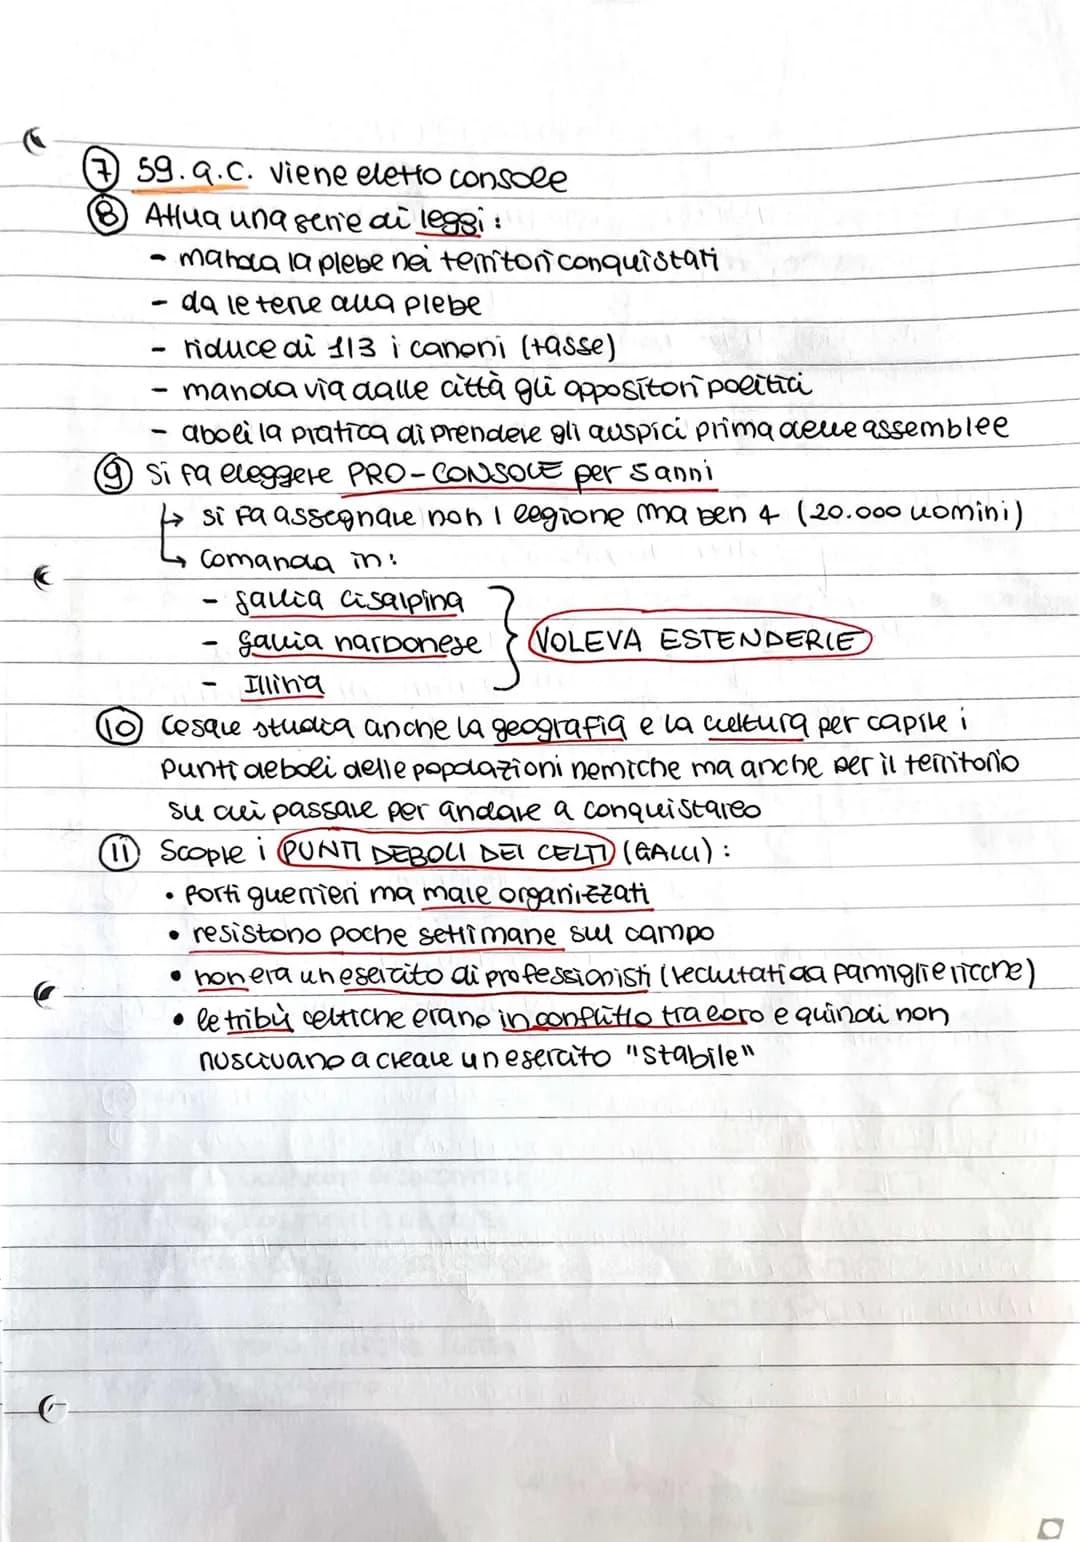 7 59.a.C. viene eletto console
8 Attua una serie di leggi:
- manda la plebe nei territori conquistati
- da le terre alla plebe
- riduce di 1/3 i canoni (tasse)
- manda via dalle città gli oppositori politici
- abolì la pratica di prendere gli auspici prima delle assemblee
9 Si fa eleggere PRO-CONSOLE per 5 anni
↳ si fa assegnare non 1 legione ma ben 4 (20.000 uomini)
↳ Comanda in:
- gallia cisalpina
- gallia narbonese } VOLEVA ESTENDERLE
- Illiria
10 Cesare studia anche la geografia e la cultura per capire i
punti deboli delle popolazioni nemiche ma anche per il territorio
su cui passare per andare a conquistareo
11 Scopre i PUNTI DEBOLI DEI CELTI (GALLI):
• forti guerrieri ma male organizzati
• resistono poche settimane sul campo
• non era un esercito di professionisti (reclutati da famiglie ricche)
• le tribù celtiche erano in conflitto tra loro e quindi non
riuscivano a creare un esercito "stabile"